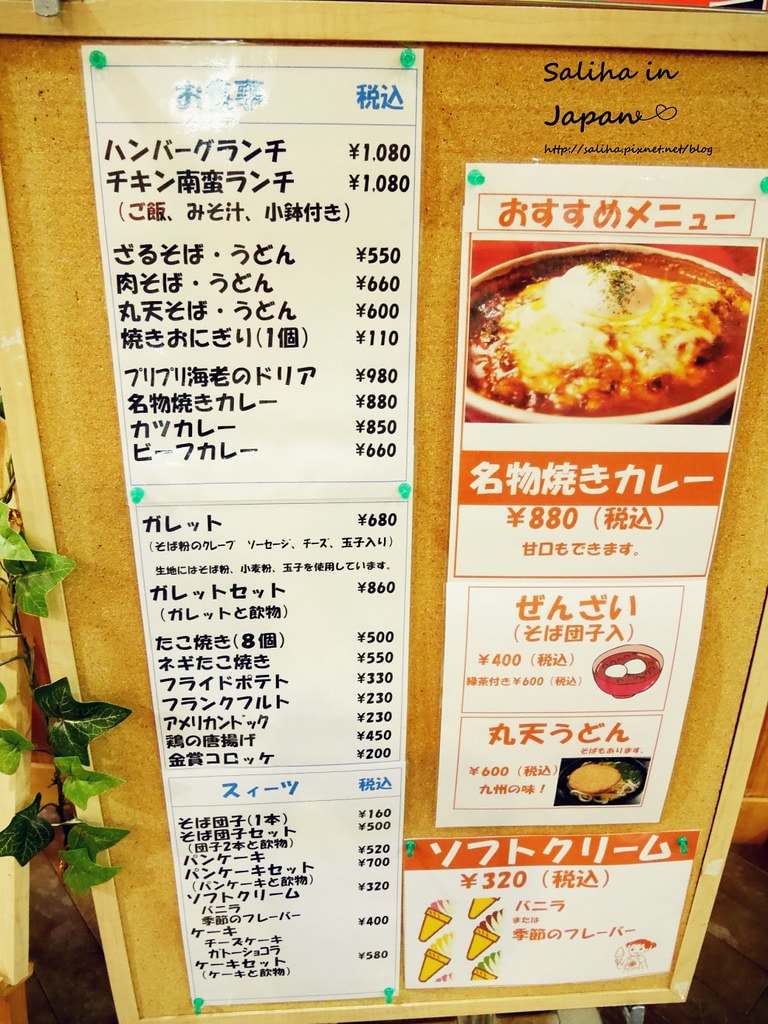 Saliha in
Japan
http://saliha.pixnet.net/blog
お食事 税込
ハンバーグランチ ¥1.080
チキン南蛮ランチ ¥1.080
(ご飯、みそ汁、小鉢付き)
ざるそば・うどん ¥550
肉そば・うどん ¥660
丸天そば・うどん ¥600
焼きおにぎり(1個) ¥110
プリプリ海老のドリア ¥980
名物焼きカレー ¥880
カツカレー ¥850
ビーフカレー ¥660
ガレット ¥680
(そば粉のクレープ ソーセージ、チーズ、玉子入り)
生地にはそば粉、小麦粉、玉子を使用しています。
ガレットセット ¥860
(ガレットと飲物)
たこ焼き(8個) ¥500
ネギたこ焼き ¥550
フライドポテト ¥330
フランクフルト ¥230
アメリカンドック ¥230
鶏の唐揚げ ¥450
金賞コロッケ ¥200
スィーツ 税込
そば団子(1本) ¥160
そば団子セット ¥500
(団子2本と飲物)
パンケーキ ¥520
パンケーキセット ¥700
(パンケーキと飲物)
ソフトクリーム ¥320
バニラ
季節のフレーバー
ケーキ ¥400
チーズケーキ
ガトーショコラ
ケーキセット ¥580
(ケーキと飲物)
おすすめメニュー
名物焼きカレー
¥880(税込)
甘口もできます。
ぜんざい
(そば団子入)
¥400(税込)
緑茶付き¥600(税込)
丸天うどん
そばもあります。
¥600(税込)
九州の味!
ソフトクリーム
¥320(税込)
バニラ
または
季節のフレーバー